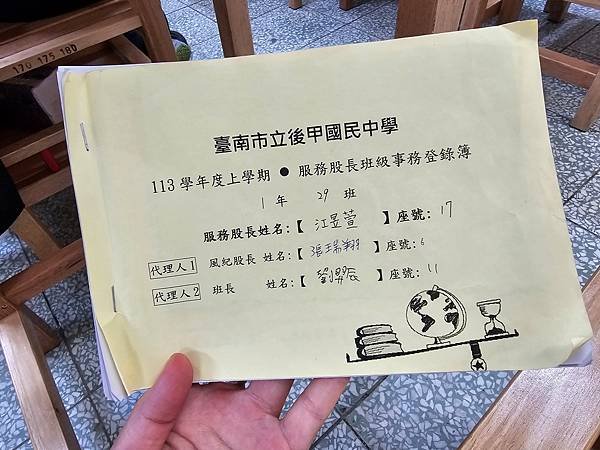 170 175 180
臺南市立後甲國民中學
113 學年度上學期 ● 服務股長班級事務登錄簿
1 年 29 班
服務股長姓名:【 江昱萱 】座號: 17
代理人1 風紀股長 姓名:【 張瑞翔 】座號: 6
代理人2 班長 姓名:【 劉 辰 】座號: 11